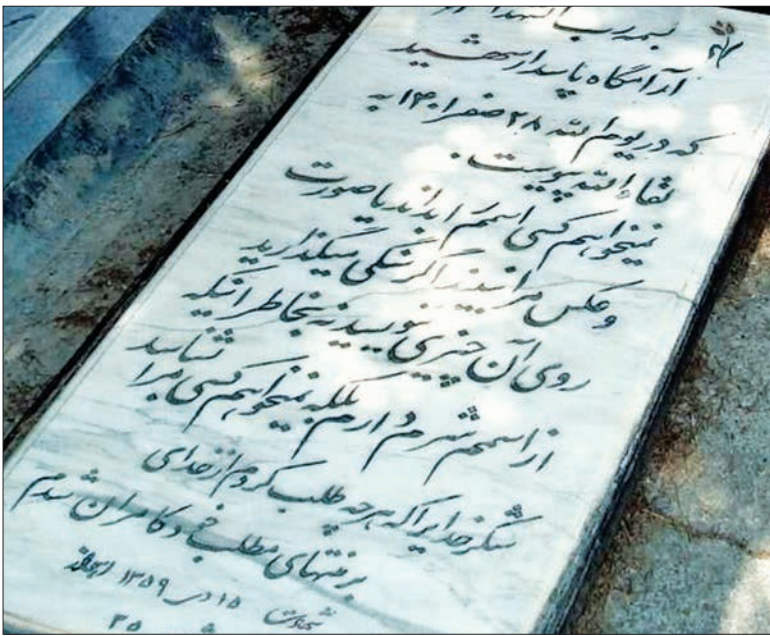 بسمه رب الشهداء
آرامگاه پاسدار شهید
که در یوم الله ۲۸ صفر ۱۴۰۱ به
لقاء الله پیوست .
نمیخواهم کسی اسمم را بداند یا صورت
و عکس مرا ببیند اگر سنگی میگذارید
روی آن چیزی ننویسید نه بخاطر اینکه
از اسمم شرم دارم بلکه نمیخواهم کسی مرا بشناسد
شکر خدایرا که هرچه طلب کردم از خدای
بر منتهای مطلب خود کامران شدم
شهادت ۱۵ دی ۱۳۵۹ هویزه
۲۵